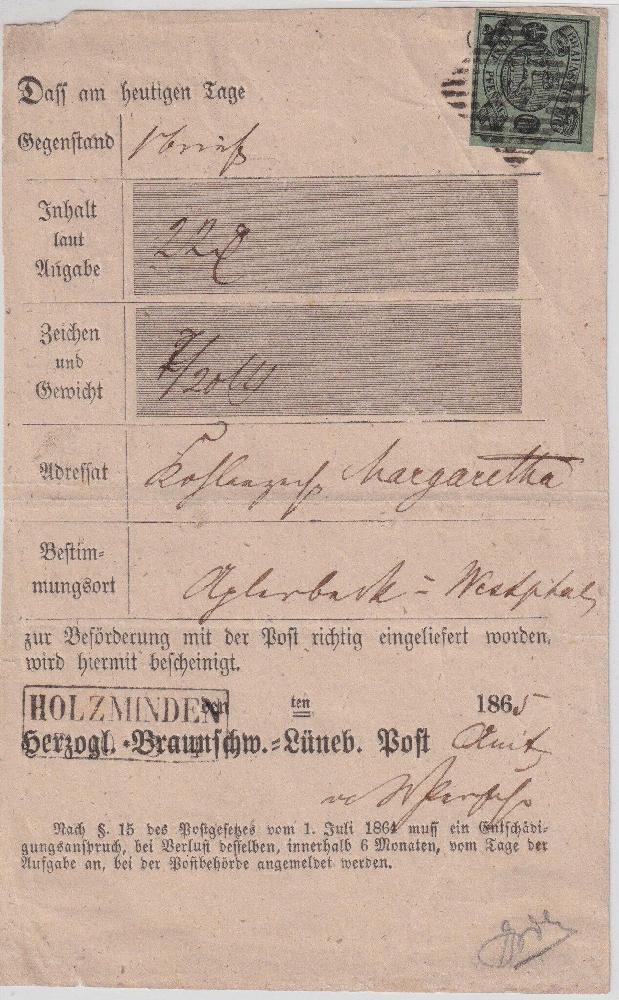 BRAUNSCHWEIG
PFENNIG
Dass am heutigen Tage
Gegenstand 1 Brief
Inhalt
laut
Angabe
22
Zeichen
und
Gewicht
Adressat
Kohlenzeche Margaretha
Bestim-
mungsort
Aplerbeck - Westphal
zur Beförderung mit der Post richtig eingeliefert worden,
wird hiermit bescheinigt.
HOLZMINDEN
den ten 1865
Herzogl. Braunschw.-Lüneb. Post Amt
Nach §. 15 des Postgesetzes vom 1. Juli 1864 muss ein Entschädi-
gungsanspruch, bei Verlust desselben, innerhalb 6 Monaten, vom Tage der
Aufgabe an, bei der Postbehörde angemeldet werden.